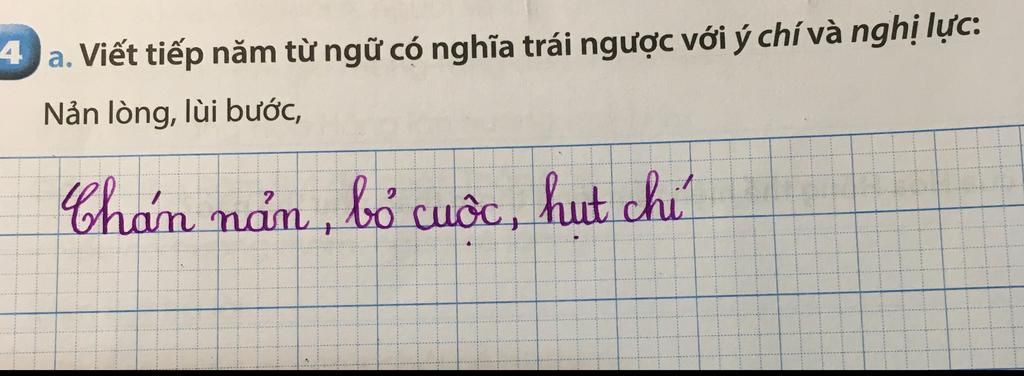 4 a. Viết tiếp năm từ ngữ có nghĩa trái ngược với ý chí và nghị lực:
Nản lòng, lùi bước,
Chán nản, bỏ cuộc, hụt chí